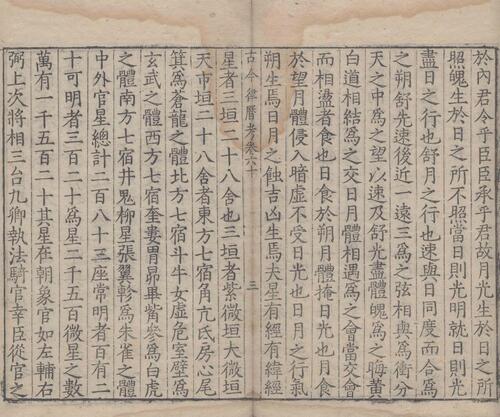 於內君令乎臣臣承乎君故月光生於日之所
照魄生於日之所不照當日則光明就日則光
盡日之行也舒月之行也速與日同度而合爲
之朔舒先速後近一遠三爲之弦相與爲衝分
天之中爲之望以速及舒光盡體魄爲之晦黃
白道相結爲之交日月體相遇爲之會當交會
而相盪者食也日食於朔月體掩日光也月食
於望月體侵入暗虛不受日光也日月之行氣
朔生焉日月之蝕吉凶生焉夫星有經有緯經
古今律曆考卷六十
三
星者三垣二十八舍也三垣者紫微垣大微垣
天市垣二十八舍者東方七宿角亢氐房心尾
箕爲蒼龍之體北方七宿斗牛女虛危室壁爲
玄武之體西方七宿奎婁胃昴畢觜參爲白虎
之體南方七宿井鬼柳星張翼軫爲朱雀之體
中外官星總計二百八十三座常明者百有二
十可明者三百二十爲星二千五百微星之數
萬有一千五百二十其星在朝象官如左輔右
弼上次將相三台九卿執法騎官幸臣從官之